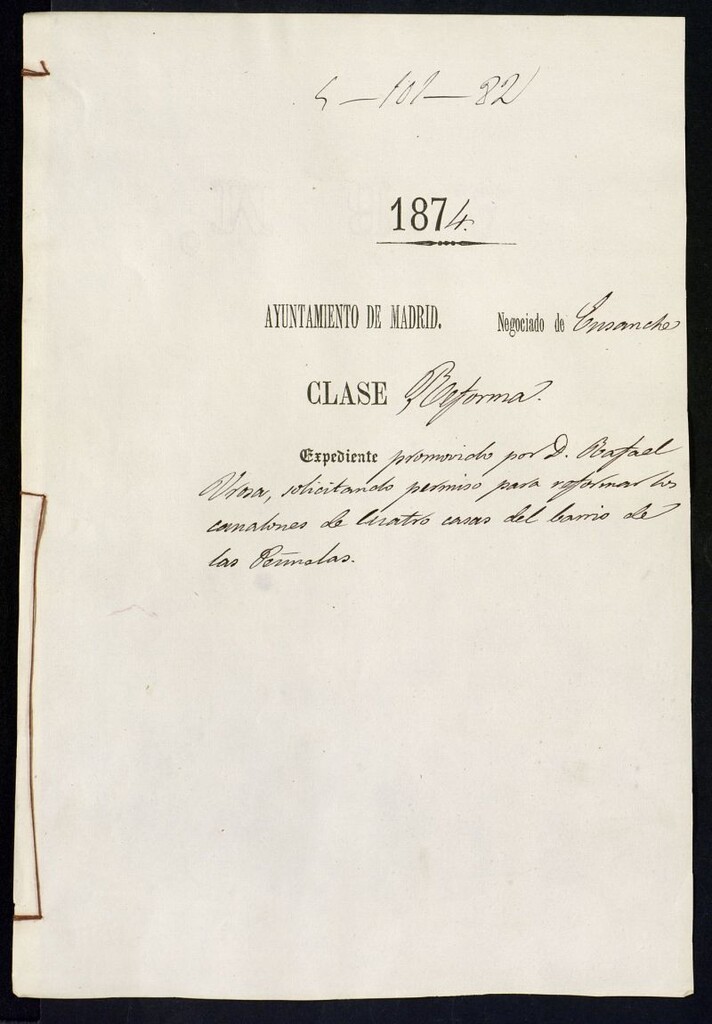 5-101-82
1874.
AYUNTAMIENTO DE MADRID. Negociado de Ensanche
CLASE Reforma.
Expediente promovido por D. Rafael
Urosa, solicitando permiso para reformar los
canalones de cuatro casas del barrio de
las Peñuelas.